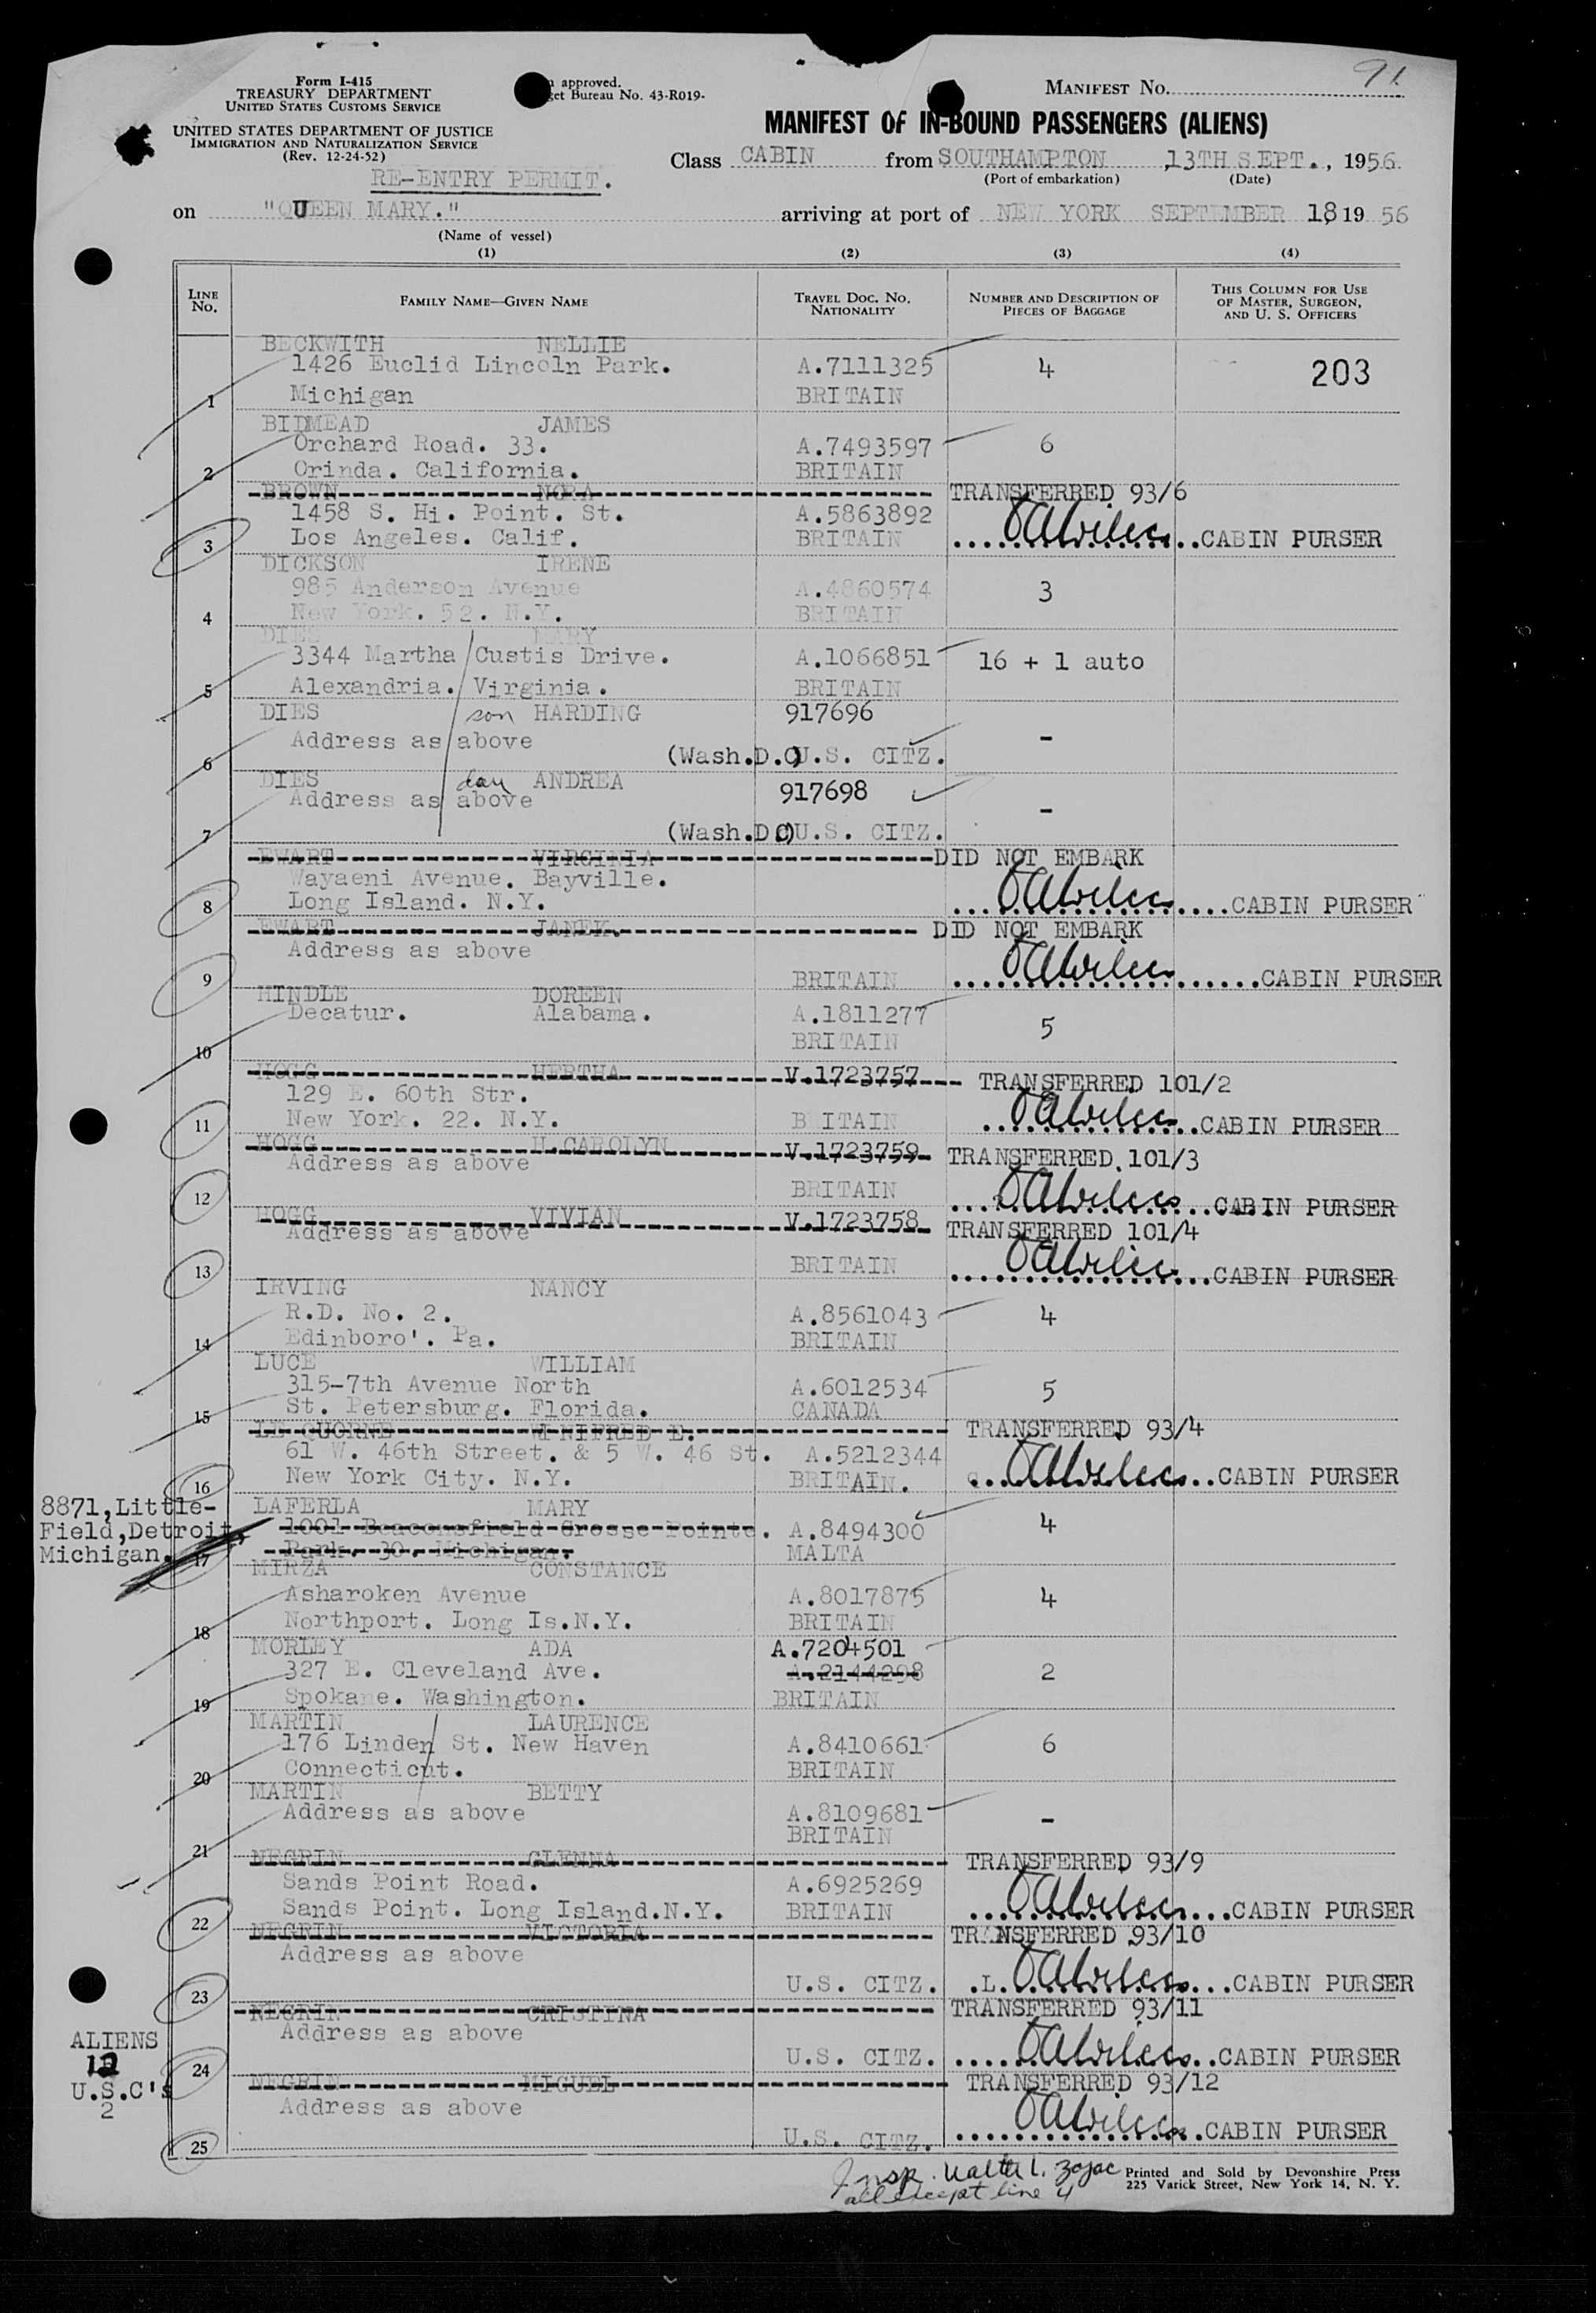 91
Form I-415
TREASURY DEPARTMENT
UNITED STATES CUSTOMS SERVICE
approved.
get Bureau No. 43-R019-
MANIFEST No.
UNITED STATES DEPARTMENT OF JUSTICE
IMMIGRATION AND NATURALIZATION SERVICE
(Rev. 12-24-52)
MANIFEST OF IN-BOUND PASSENGERS (ALIENS)
RE-ENTRY PERMIT.
Class CABIN from SOUTHAMPTON, 13TH SEPT., 1956.
(Port of embarkation) (Date)
on "QUEEN MARY." arriving at port of NEW YORK SEPTEMBER 18, 19 56
(Name of vessel)
(1) (2) (3) (4)
LINE No. FAMILY NAME—GIVEN NAME TRAVEL DOC. No. NATIONALITY NUMBER AND DESCRIPTION OF PIECES OF BAGGAGE THIS COLUMN FOR USE OF MASTER, SURGEON, AND U. S. OFFICERS
BECKWITH NELLIE
1426 Euclid Lincoln Park. A.7111325 4 203
1 Michigan BRITAIN
BIDMEAD JAMES
Orchard Road. 33. A.7493597 6
2 Orinda. California. BRITAIN
BROWN NORA TRANSFERRED 93/6
1458 S. Hi. Point. St. A.5863892
3 Los Angeles. Calif. BRITAIN CABIN PURSER
DICKSON IRENE
985 Anderson Avenue A.4860574 3
4 New York. 52. N.Y. BRITAIN
DIES MARY
3344 Martha Custis Drive. A.1066851 16 + 1 auto
5 Alexandria. Virginia. BRITAIN
DIES son HARDING 917696
Address as above -
6 (Wash.D.C) U.S. CITZ.
DIES dau ANDREA 917698
Address as above -
7 (Wash.DC) U.S. CITZ.
EWART VIRGINIA DID NOT EMBARK
Wayaeni Avenue. Bayville.
8 Long Island. N.Y. CABIN PURSER
EWART JANEK. DID NOT EMBARK
Address as above
9 BRITAIN CABIN PURSER
HINDLE DOREEN
Decatur. Alabama. A.1811277 5
10 BRITAIN
HOGG HERTHA V.1723757 TRANSFERRED 101/2
129 E. 60th Str.
11 New York. 22. N.Y. B ITAIN CABIN PURSER
HOGG H.CAROLYN V.1723759 TRANSFERRED. 101/3
Address as above
12 BRITAIN CABIN PURSER
HOGG VIVIAN V.1723758 TRANSFERRED 101/4
Address as above
13 BRITAIN CABIN PURSER
IRVING NANCY
R.D. No. 2. A.8561043 4
14 Edinboro'. Pa. BRITAIN
LUCE WILLIAM
315-7th Avenue North A.6012534 5
15 St. Petersburg. Florida. CANADA
LE QUORNE WINIFRED E. TRANSFERRED 93/4
61 W. 46th Street. & 5 W. 46 St. A.5212344
16 New York City. N.Y. BRITAIN. CABIN PURSER
8871, Little-
Field, Detroit,
Michigan.
LAFERLA MARY
1001 Beaconsfield Grosse Pointe. A.8494300 4
17 Park. 30. Michigan. MALTA
MIRZA CONSTANCE
Asharoken Avenue A.8017875 4
18 Northport. Long Is.N.Y. BRITAIN
MORLEY ADA A.7204501
327 E. Cleveland Ave. A.2144298 2
19 Spokane. Washington. BRITAIN
MARTIN LAURENCE
176 Linden St. New Haven A.8410661 6
20 Connecticut. BRITAIN
MARTIN BETTY
Address as above A.8109681 -
21 BRITAIN
NEGRIN GLENNA TRANSFERRED 93/9
Sands Point Road. A.6925269
22 Sands Point. Long Island.N.Y. BRITAIN CABIN PURSER
NEGRIN VICTORIA TRANSFERRED 93/10
Address as above
23 U.S. CITZ. CABIN PURSER
NEGRIN CRISTINA TRANSFERRED 93/11
Address as above
24 U.S. CITZ. CABIN PURSER
NEGRIN MIGUEL TRANSFERRED 93/12
Address as above
25 U.S. CITZ. CABIN PURSER
ALIENS
12
U.S.C's
2
Insp. Walter L. Zajac
all except line 4
Printed and Sold by Devonshire Press
225 Varick Street, New York 14, N. Y.